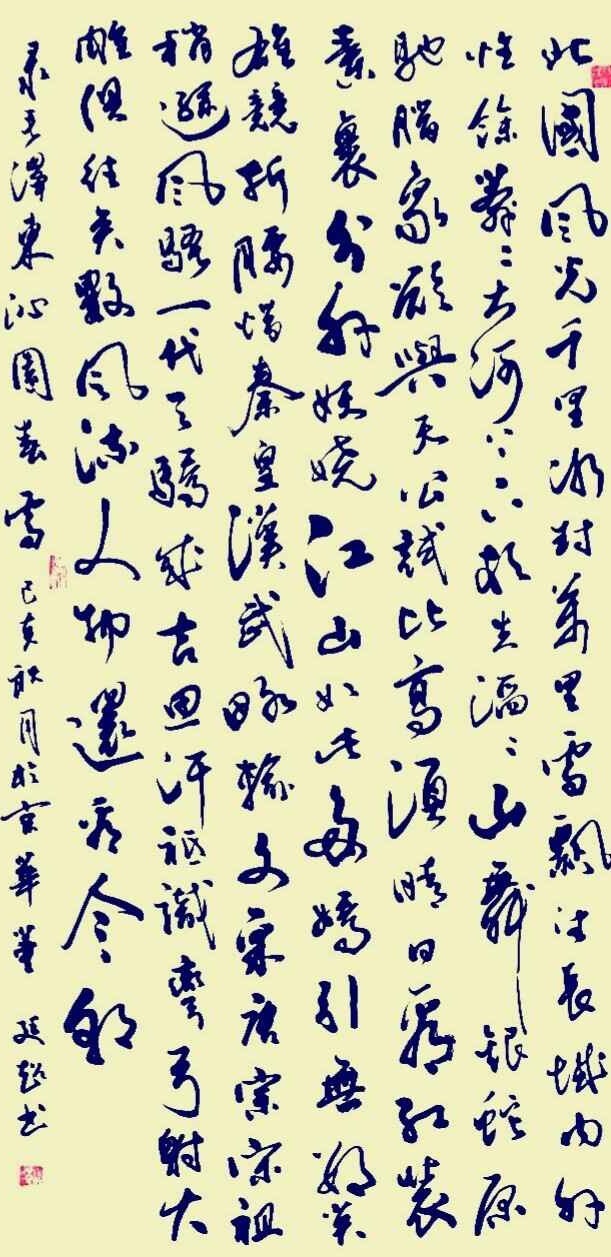 北國風光千里冰封萬里雪飄望長城内外
惟餘莽莽大河上下頓失滔滔山舞銀蛇原
馳臘象欲與天公試比高須晴日看紅裝
素裹分外妖嬈江山如此多嬌引無數英
雄競折腰惜秦皇漢武略輸文采唐宗宋祖
稍遜風騷一代天驕成吉思汗衹識彎弓射大
雕俱往矣數風流人物還看今朝
录毛澤東沁園春雪 己亥秋月於京華董延超书